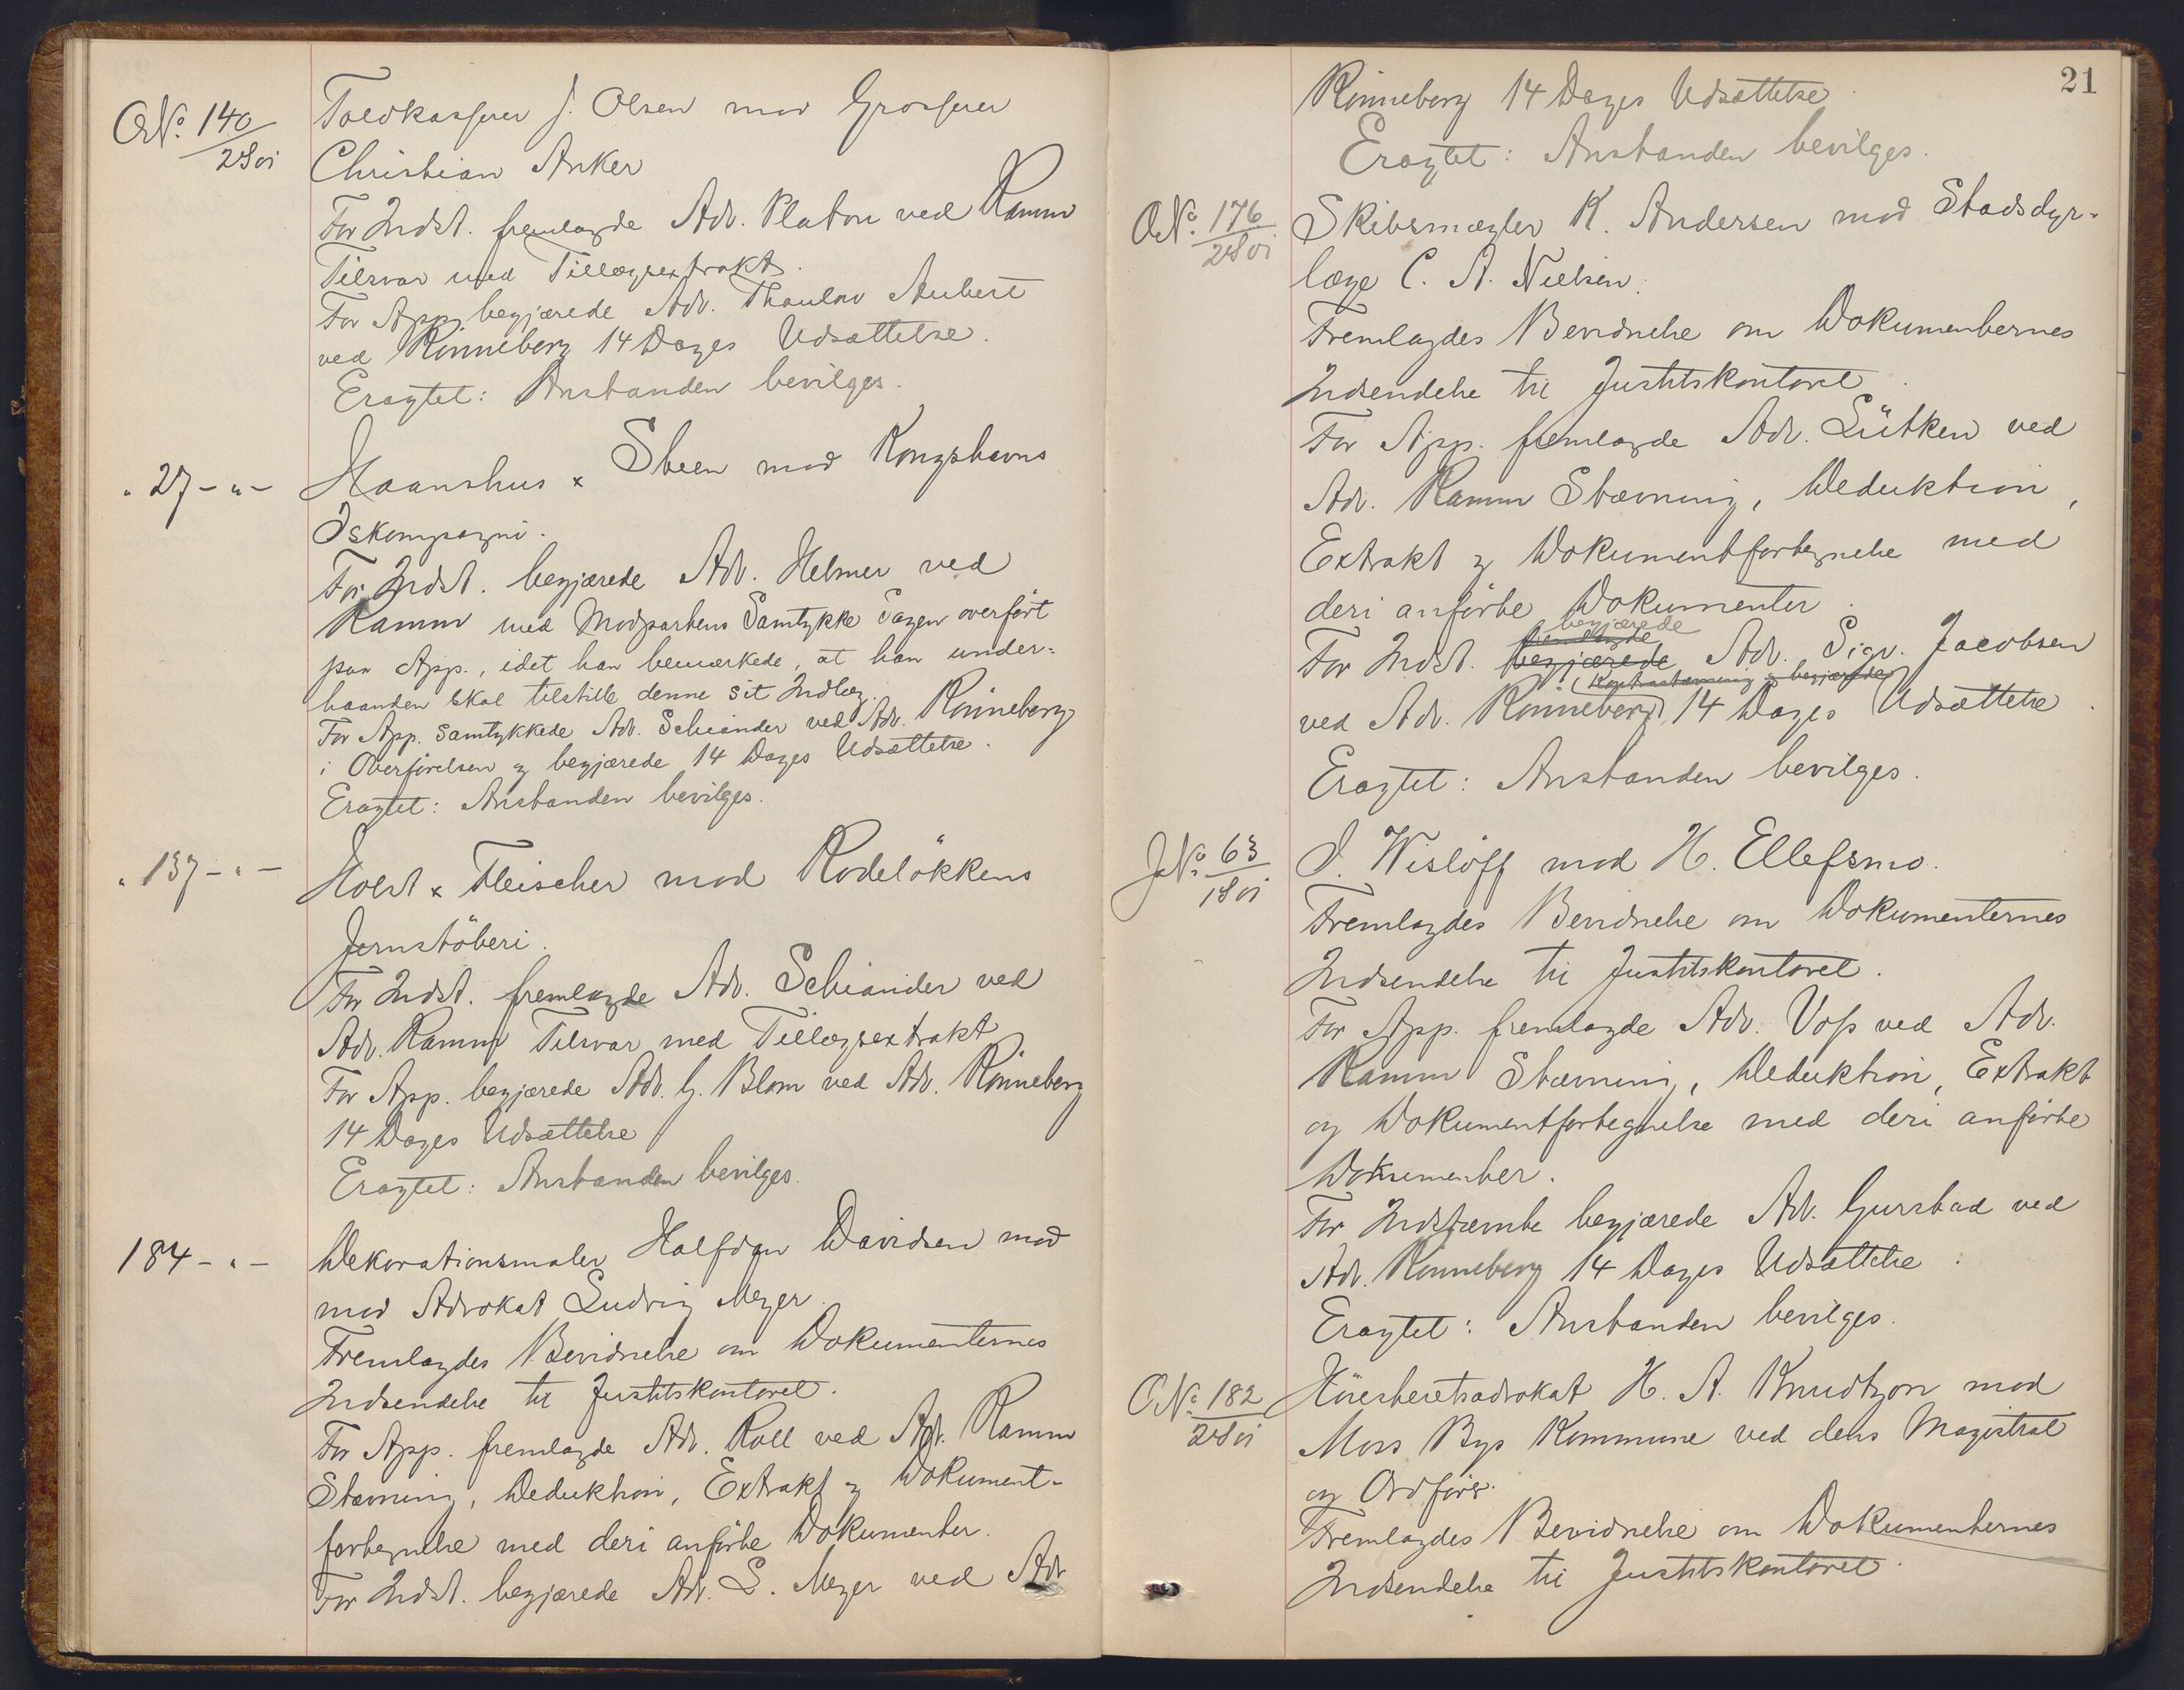 O.No. 140/2S01
Toldkasserer J. Olsen mod Grosserer
Christian Anker
For Indst. fremlagde Adv. Platou ved Ramm
Tilsvar med Tillægsextrakt.
For App. begjærede Adv. Thaulow Aubert
ved Rönneberg 14 Dages Udsættelse.
Eragtet: Anstanden bevilges.
" 27 - " -
Haanshus & Steen mod Kongshavns
Iskompagni.
For Indst. begjærede Adv. Helmer ved
Ramm med Modpartens Samtykke Sagen overfört
paa App., idet han bemærkede, at han under-
haanden skal tilstille denne sit Indlæg.
For App. samtykkede Adv. Schiander ved Adv. Rönneberg
i Overförelsen og begjærede 14 Dages Udsættelse.
Eragtet: Anstanden bevilges.
" 137 - " -
Holst & Fleischer mod Rodelökkens
Jernstöberi.
For Indst. fremlagde Adv. Schiander ved
Adv. Ramm Tilsvar med Tillægsextrakt
For App. begjærede Adv. G. Blom ved Adv. Rönneberg
14 Dages Udsættelse
Eragtet: Anstanden bevilges.
184 - " -
Dekorationsmaler Halfdan Davidsen mod
mod Advokat Ludvig Meyer.
Fremlagdes Bevidnelse om Dokumenternes
Indsendelse til Justitskontoret.
For App. fremlagde Adv. Roll ved Adv. Ramm
Stævning, Deduktion, Extrakt og Dokument-
fortegnelse med deri anförte Dokumenter.
For Indst. begjærede Adv. L. Meyer ved Adv.
21
Rönneberg 14 Dages Udsættelse.
Eragtet: Anstanden bevilges.
O.No. 176/2S01
Skibsmægler K. Andersen mod Stadsdyr-
læge C. A. Nielsen.
Fremlagdes Bevidnelse om Dokumenternes
Indsendelse til Justitskontoret.
For App. fremlagde Adv. Lütken ved
Adv. Ramm Stævning, Deduktion,
Extrakt og Dokumentfortegnelse med
deri anförte Dokumenter.
begjærede
fremlagde
For Indst. begjærede Adv. Sigv. Jacobsen
Kontrastævning og begjærede
ved Adv. Rönneberg 14 Dages Udsættelse.
Eragtet: Anstanden bevilges.
J.No. 63/1S01
J. Wislöff mod H. Ellefsmo.
Fremlagdes Bevidnelse om Dokumenternes
Indsendelse til Justitskontoret.
For App. fremlagde Adv. Voss ved Adv.
Ramm Stævning, Deduktion, Extrakt
og Dokumentfortegnelse med deri anförte
Dokumenter.
For Indstævnte begjærede Adv. Gurstad ved
Adv. Rönneberg 14 Dages Udsættelse.
Eragtet: Anstanden bevilges.
O.No. 182/2S01
Höiesteretsadvokat H. A. Knudtzon mod
Moss Bys Kommune ved dens Magistrat
og Ordförer.
Fremlagdes Bevidnelse om Dokumenternes
Indsendelse til Justitskontoret.